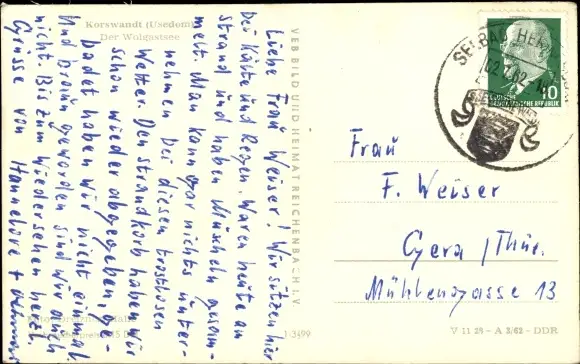 Korswandt (Usedom)
Der Wolgastsee
Liebe Frau Weiser! Wir sitzen hier
bei Kälte und Regen. Waren heute am
Strand und haben Muscheln gesam-
melt. Man kann gar nichts unter-
nehmen bei diesem trostlosen
Wetter. Den Strandkorb haben wir
schon wieder abgegeben, ge-
badet haben wir nicht einmal.
Und braun geworden sind wir auch
nicht. Bis zum Wiedersehen herzl.
Grüsse von Hannelore +
VEB BILD UND HEIMAT REICHENBACH I. V.
1-3499
SEEBAD
10
DEUTSCHE
DEMOKRATISCHE REPUBLIK
Frau
F. Weiser
Gera / Thür.
Mühlengasse 13
V 11 28 - A 3/62 - DDR